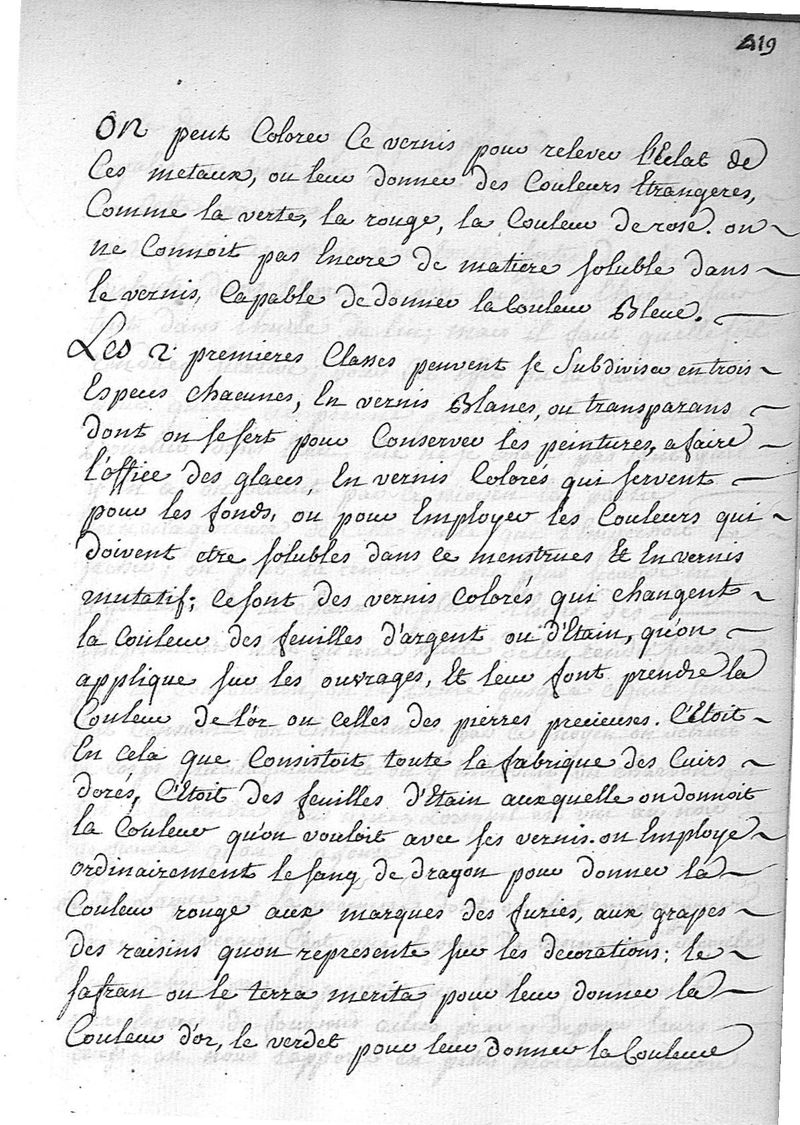 419
On peut Colorer Ce vernis pour relever l'Eclat de
Ces metaux, ou leur donner des Couleurs Etrangeres,
Comme la verte, la rouge, la Couleur de rose. on
ne Connoit pas Encore de matiere soluble dans
le vernis, Capable de donner la Couleur Bleue.
Les 2. premieres Classes peuvent se Subdiviser en trois
Especes chacunes, En vernis Blancs, ou transparans
dont on se sert pour Conserver les peintures, a faire
l'office des glaces En vernis Colorés qui servent
pour les fonds, ou pour Employer les Couleurs qui
doivent etre solubles dans ce menstrues Et En vernis
mutatif; ce sont des vernis Colorés qui changent
la Couleur des feuilles d'argent ou d'Etain, qu'on
applique sur les ouvrages, Et leur font prendre la
Couleur de l'or ou celles des pierres precieuses. C'Etoit
En cela que Consistoit toute la fabrique des Cuirs
dorés, C'Etoit des feuilles d'Etain auxquelle on donnoit
la Couleur qu'on vouloit avec ses vernis. on Employe
ordinairement le sang de dragon pour donner la
Couleur rouge aux marques des furies, aux grapes
des raisins quon represente sur les decorations; le
safran ou le terra merita pour leur donner la
Couleur d'or, le verdet pour leur donner la Couleur